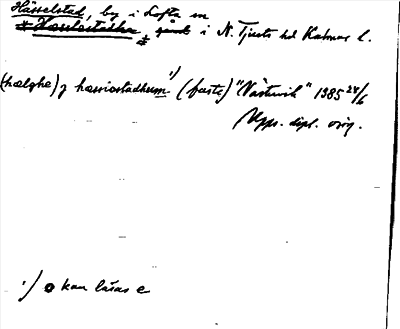 Hässelstad, by i Lofta sn
i N. Tjusts hd Kalmar l.
(hælghe) j hæssiostadhum ¹) (faste) "Västervik" 1385 24/6
Upps. dipl. orig.
¹) o kan läsas e